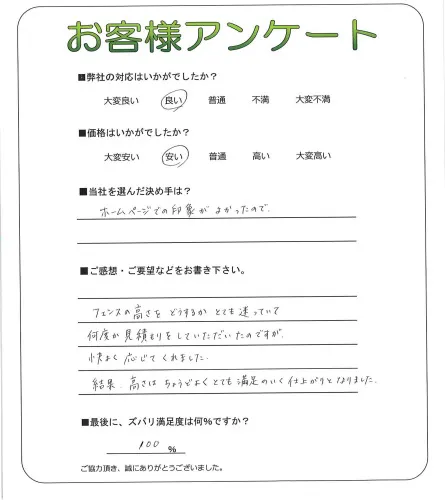 お客様アンケート
■弊社の対応はいかがでしたか？
大変良い 良い 普通 不満 大変不満
■価格はいかがでしたか？
大変安い 安い 普通 高い 大変高い
■当社を選んだ決め手は？
ホームページでの印象がよかったので、
■ご感想・ご要望などをお書き下さい。
フェンスの高さをどうするかとても迷っていて
何度か見積もりをしていただいたのですが、
快よく応じてくれました。
結果、高さはちょうどよくとても満足のいく仕上がりとなりました。
■最後に、ズバリ満足度は何%ですか？
100 %
ご協力頂き、誠にありがとうございました。